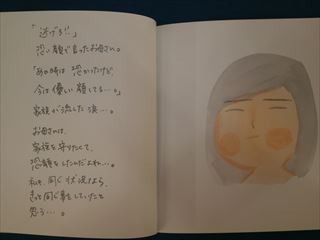 「逃げろ!!」
恐い顔で言ったお母さん。
「あの時は恐かったけど
今は優しい顔してる…。」
家族が流した涙…。
お母さんは、
家族を守りたくて、
恐い顔をしたんだよね…。
私も、同じ状況なら、
きっと同じ事をしていたと
思う…。